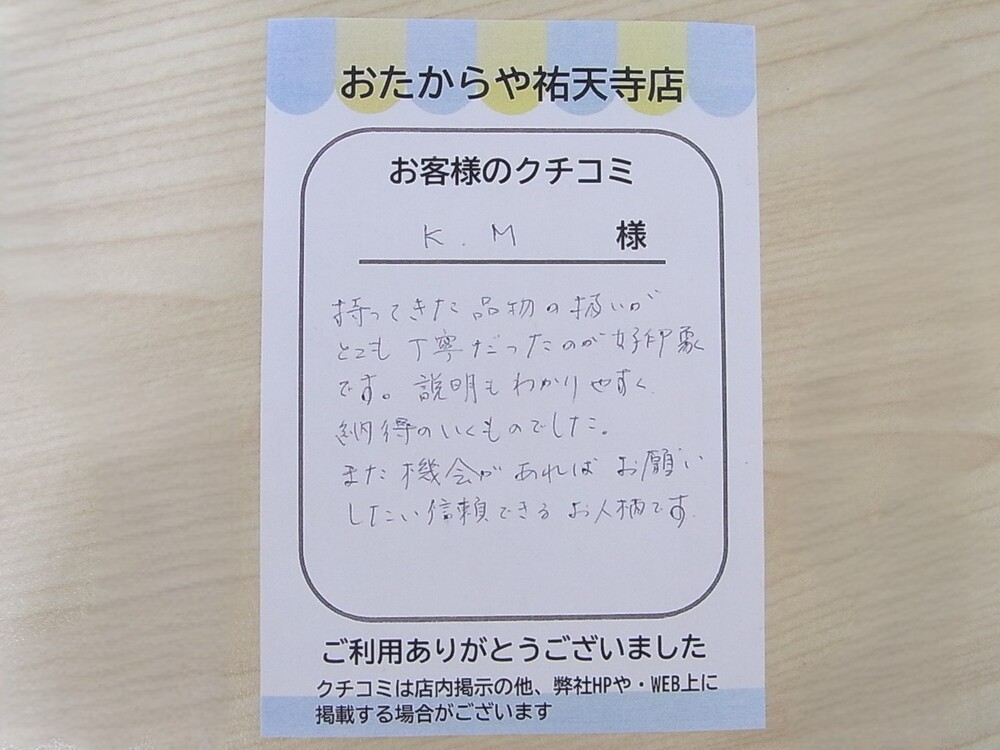 おたからや祐天寺店
お客様のクチコミ
K.M 様
持ってきた品物の扱いが
とても丁寧だったのが好印象
です。説明もわかりやすく
納得のいくものでした。
また機会があればお願い
したい信頼できるお人柄です
ご利用ありがとうございました
クチコミは店内掲示の他、弊社HPや・WEB上に
掲載する場合がございます